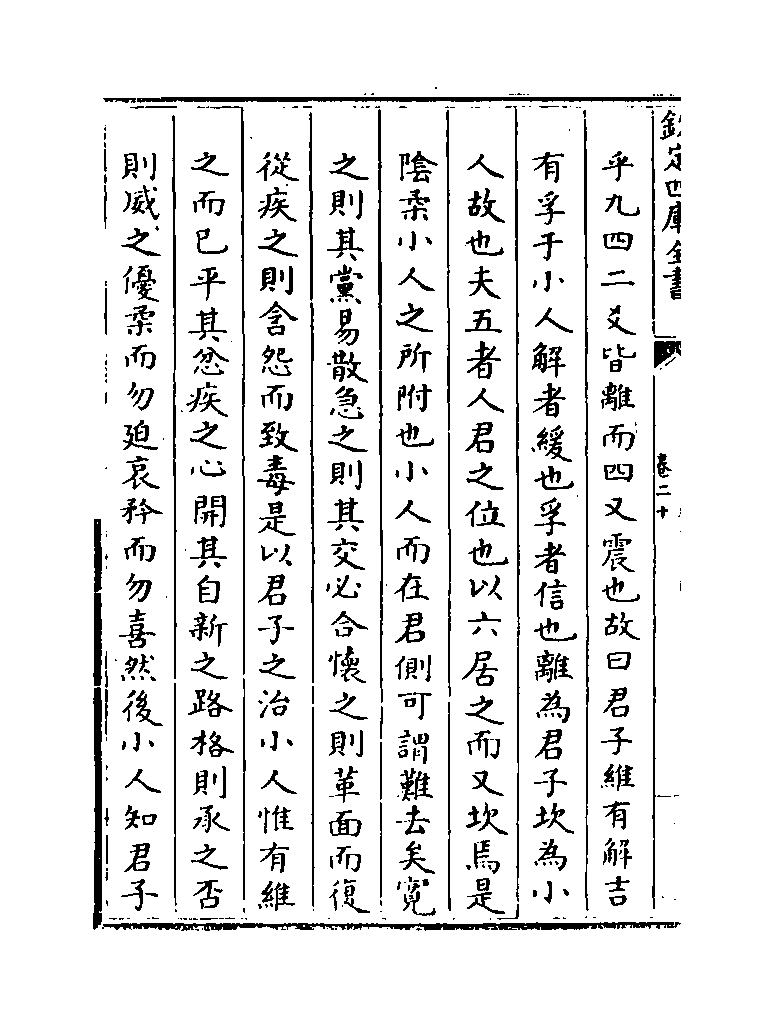 欽定四庫全書
卷二十
乎九四二爻皆離而四又震也故曰君子維有解吉
有孚于小人解者緩也孚者信也離為君子坎為小
人故也夫五者人君之位也以六居之而又坎焉是
陰柔小人之所附也小人而在君側可謂難去矣寛
之則其黨易散急之則其交必合懐之則革面而復
從疾之則含怨而致毒是以君子之治小人惟有維
之而已平其忿疾之心開其自新之路格則承之否
則威之優柔而勿廹哀矜而勿喜然後小人知君子